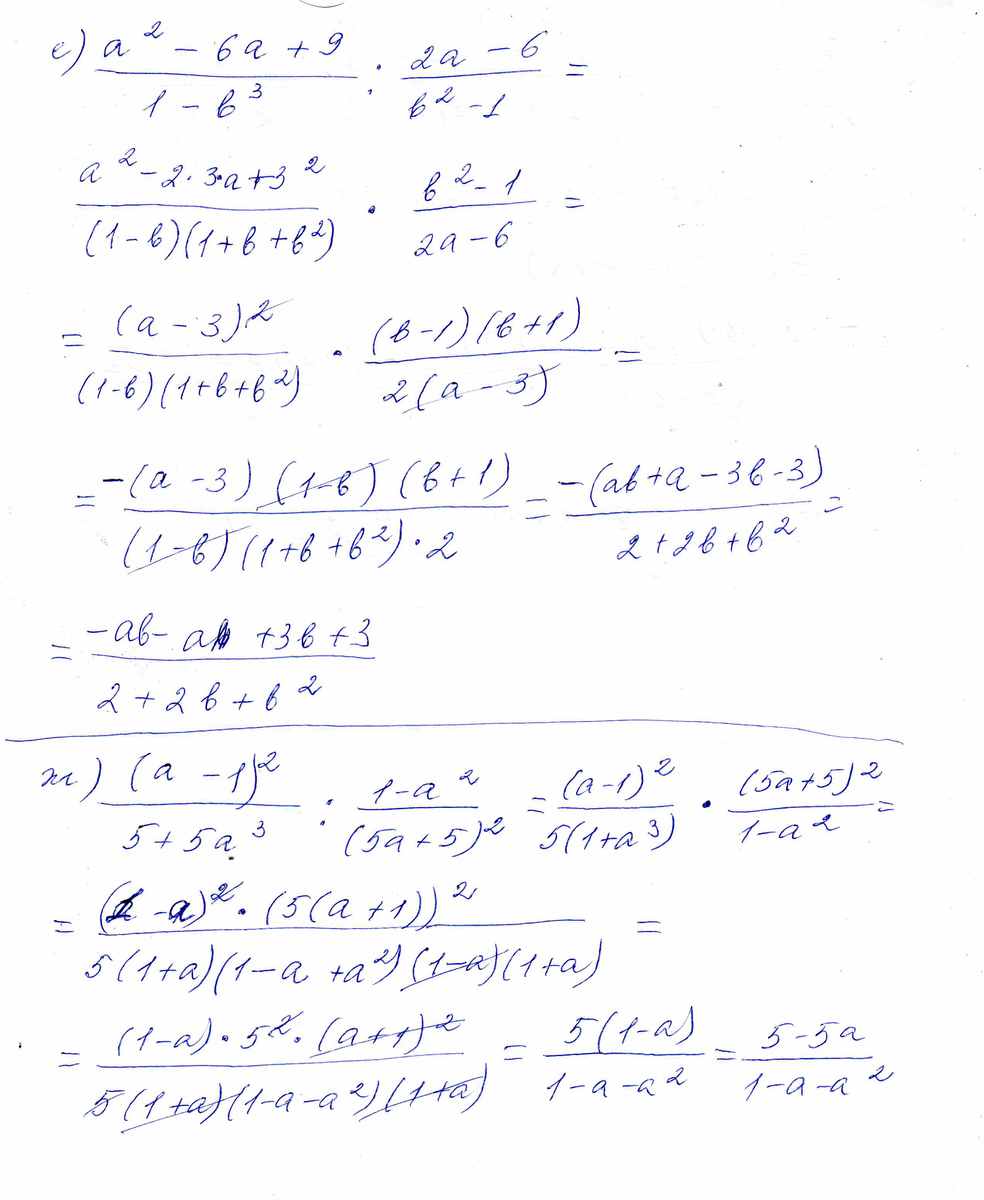 е) (a² - 6a + 9)/(1 - в³) : (2a - 6)/(в² - 1) =
(a² - 2·3·a + 3²)/((1-в)(1+в+в²)) · (в² - 1)/(2a - 6) =
= (a - 3)²/((1-в)(1+в+в²)) · ((в-1)(в+1))/(2(a - 3)) =
= (-(a - 3)(1-в)(в+1))/((1-в)(1+в+в²)·2) = (-(aв+a-3в-3))/(2+2в+в²) =
= (-aв - a + 3в + 3)/(2 + 2в + в²)
ж) (a - 1)²/(5 + 5a³) : (1-a²)/(5a+5)² = (a-1)²/(5(1+a³)) · (5a+5)²/(1-a²) =
= ((1-a)²·(5(a+1))²)/(5(1+a)(1-a+a²)(1-a)(1+a)) =
= ((1-a)·5²·(a+1)²)/(5(1+a)(1-a-a²)(1+a)) = (5(1-a))/(1-a-a²) = (5-5a)/(1-a-a²)